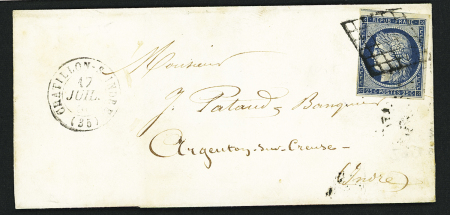 REPUB. FRANC.
25 C. POSTES 25 C.
CHATILLON-S-INDRE
17
JUIL.
(35)
Monsieur
J. Pataud, Banquier
Argenton-sur-Creuse
(Indre)